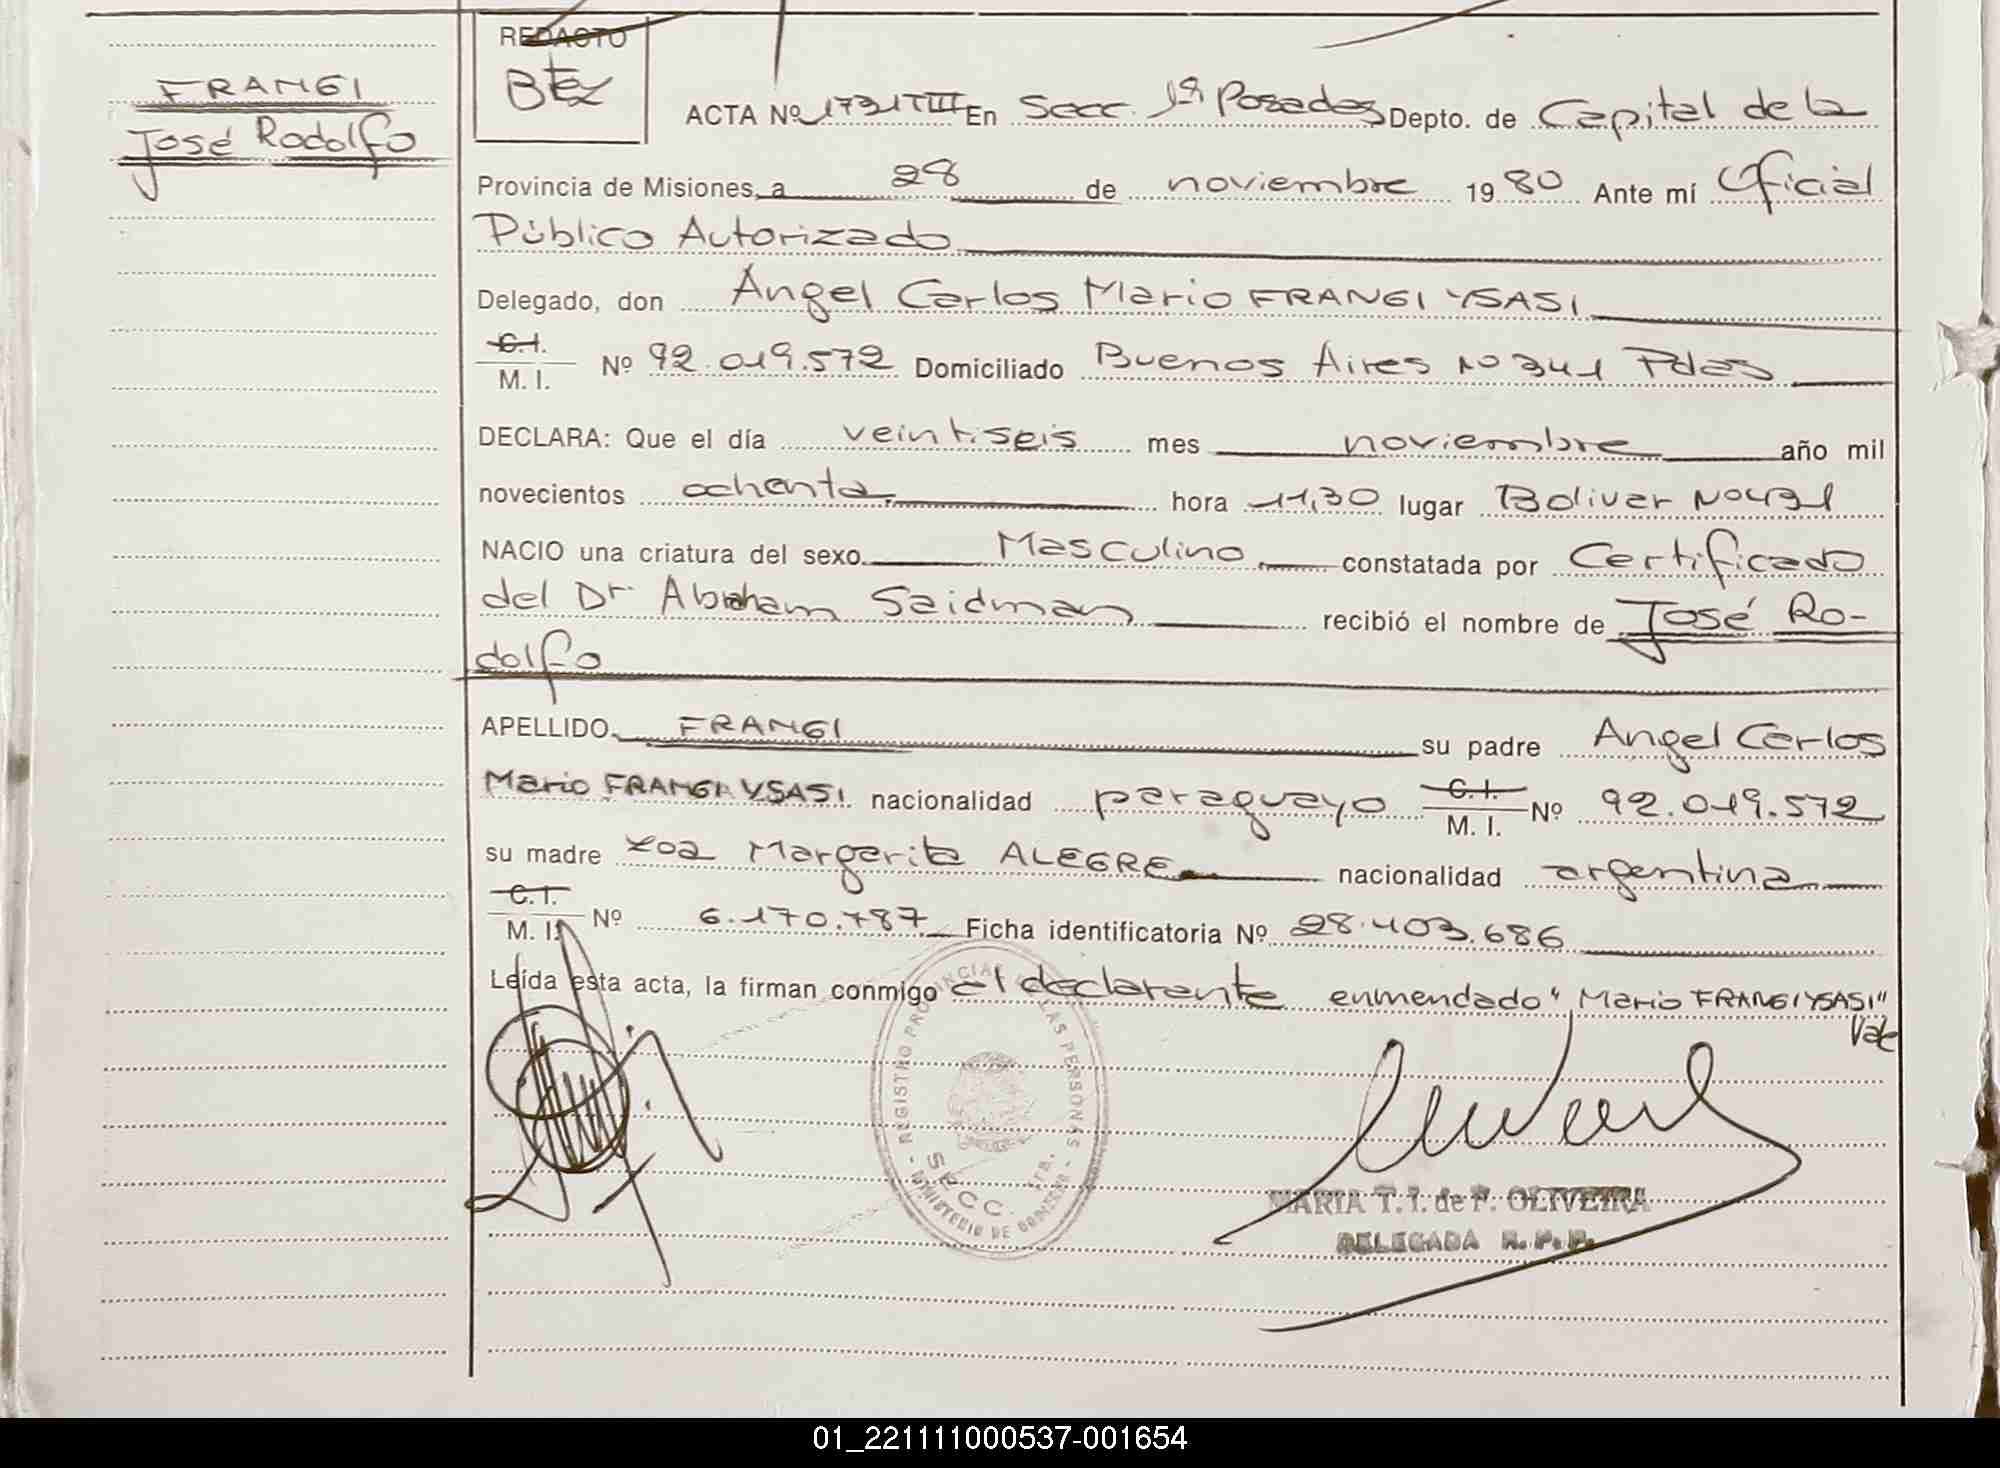 FRANGI
José Rodolfo
REDACTO
Btez
ACTA Nº 1731 TIII En Secc. 1ª Posadas Depto. de Capital de la
Provincia de Misiones, a 28 de noviembre 19 80 Ante mí Oficial
Público Autorizado
Delegado, don Angel Carlos Mario FRANGI YSASI
C.I.
M. I. Nº 92.019.572 Domiciliado Buenos Aires Nº 341 Pdas
DECLARA: Que el día veintiseis mes noviembre año mil
novecientos ochenta hora 11,30 lugar Bolivar Nº 431
NACIO una criatura del sexo Masculino constatada por Certificado
del Dr Abraham Saidman recibió el nombre de José Ro-
dolfo
APELLIDO FRANGI su padre Angel Carlos
Mario FRANGI YSASI nacionalidad paraguayo C.I. M. I. Nº 92.019.572
su madre Zoa Margarita ALEGRE nacionalidad argentina
C.I.
M. I. Nº 6.170.787 Ficha identificatoria Nº 28.403.686
Leída esta acta, la firman conmigo el declarente enmendado "Mario FRANGI YSASI"
Vale
REGISTRO PROVINCIAL DE LAS PERSONAS
SECC. 1RA.
MINISTERIO DE GOBIERNO
MARIA T. I. de F. OLIVEIRA
DELEGADA R. P. P.
01_221111000537-001654